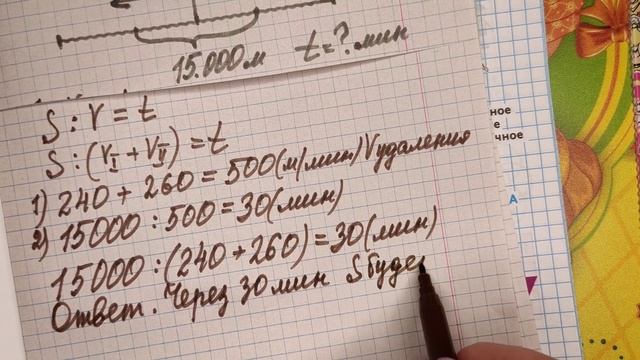 15.000м t=? мин
S : V = t
S : (VI + VII) = t
1) 240 + 260 = 500 (м/мин) Vудаления
2) 15000 : 500 = 30 (мин)
15000 : (240 + 260) = 30 (мин)
Ответ. Через 30 мин S буде
ное
е
чное
А